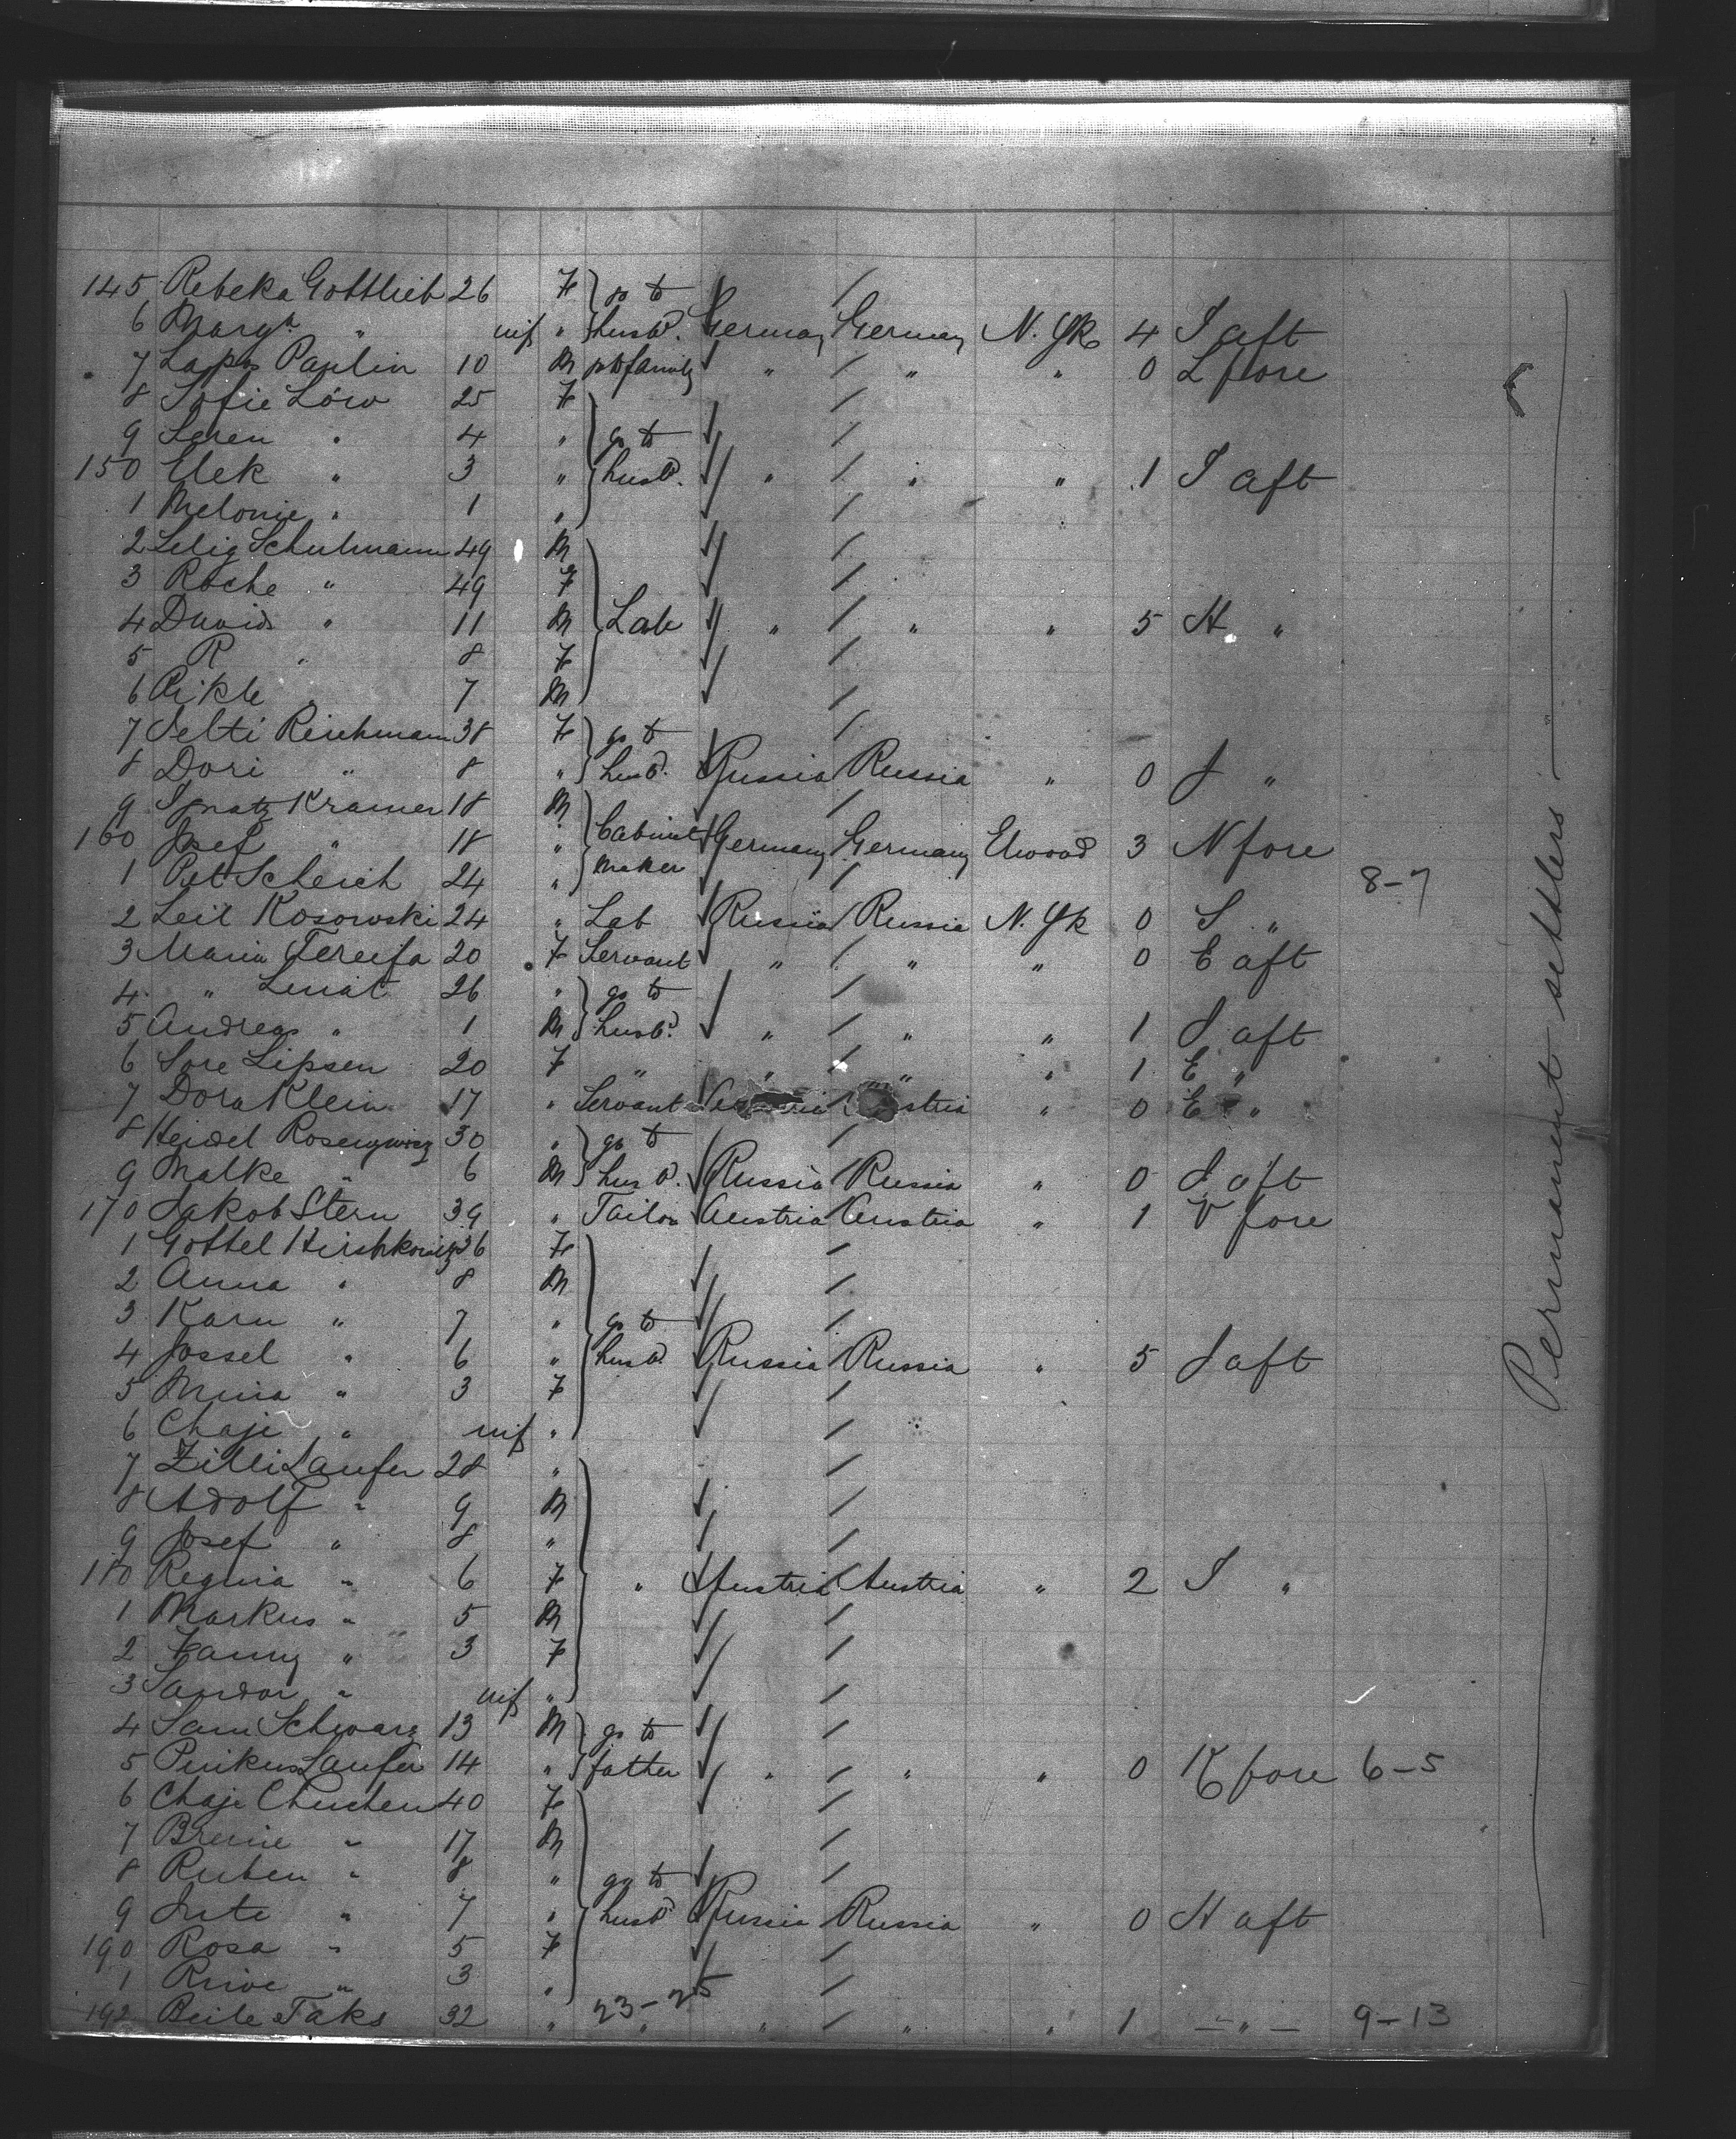 145 Rebeka Gottlieb 26 F go to
6 Margt " inf " husbd. Germany Germany N. Yk 4 S aft
7 Lapos Paulin 10 M go to family " " " 0 L fore
8 Sofie Löw 25 F
9 Seren " 4 " go to
150 Elek " 3 " husbd. " " " 1 S aft
1 Melonie " 1 "
2 Selig Schulmann 49 M
3 Roche " 49 F
4 David " 11 M Lab " " " 5 H "
5 R " 8 F
6 Rikle " 7 M
7 Selti Reichmann 38 F go to
8 Dori " 8 " husbd. Russia Russia " 0 J "
9 Ignatz Kramer 18 M
160 Josef " 18 " Cabinet Germany Germany Elwood 3 N fore
1 Pet Scheich 24 " maker 8-7
2 Leil Kosowski 24 " Lab Russia Russia N. Yk 0 S "
3 Maria 20 F Servant " " " 0 E aft
4 " 26 " go to
5 Andreas " 1 M husbd. " " " 1 J aft
6 Sore Lipsen 20 F " " " " 1 E "
7 Dora Klein 17 " Servant Austria Austria " 0 E "
8 Heidel 30 " go to
9 Malke " 6 M husbd. Russia Russia " 0 J aft
170 Jakob Stern 39 " Tailor Austria Austria " 1 V fore
1 Gottel Hirshkowitz 36 F
2 Anna " 8 M
3 Karu " 7 " go to
4 Jossel " 6 " husbd. Russia Russia " 5 J aft
5 Mina " 3 F
6 Chaje " inf "
7 Zilli Laufer 28 "
8 Adolf " 9 M
9 Josef " 8 "
180 Regina " 6 F " Austria Austria " 2 S "
1 Markus " 5 M
2 Fanny " 3 F
3 Sandor " inf "
4 Sam Schwarz 13 M go to
5 Pinkus Laufer 14 " father " " " 0 K fore 6-5
6 Chaje 40 F
7 17 M
8 Ruben " 8 " go to
9 " 7 " husbd Russia Russia " 0 H aft
190 Rosa " 5 F
1 Rive " 3 " 23-25
192 Beile Taks 32 " " " " " 1 — " — 9-13
Permanent settlers